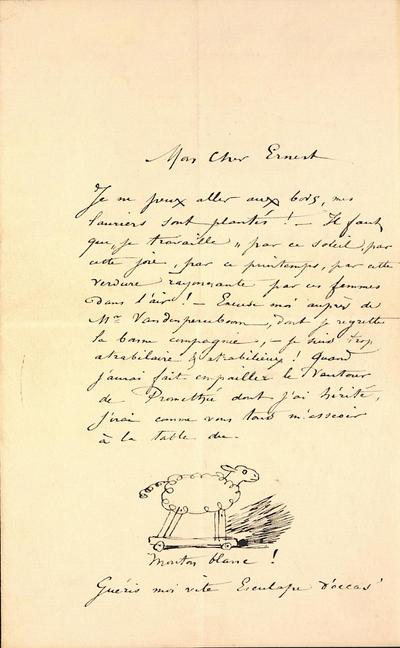 Mon Cher Ernest
Je ne peux aller aux bois, mes
lauriers sont plantés ! — Il faut
que je travaille „ par ce soleil, par
cette joie, par ce printemps, par cette
verdure rayonnante par ces femmes
dans l'air ! — Excuse moi auprès de
Mr dont je regrette
la bonne compagnie, — je suis trop
atrabilaire & atrabilieux ! Quand
j'aurai fait empailler le Vautour
de Promethée dont j'ai hérité,
j'irai comme vous tous m'asseoir
à la table du.
Mouton blanc !
Guéris moi vite Esculape d'occas'